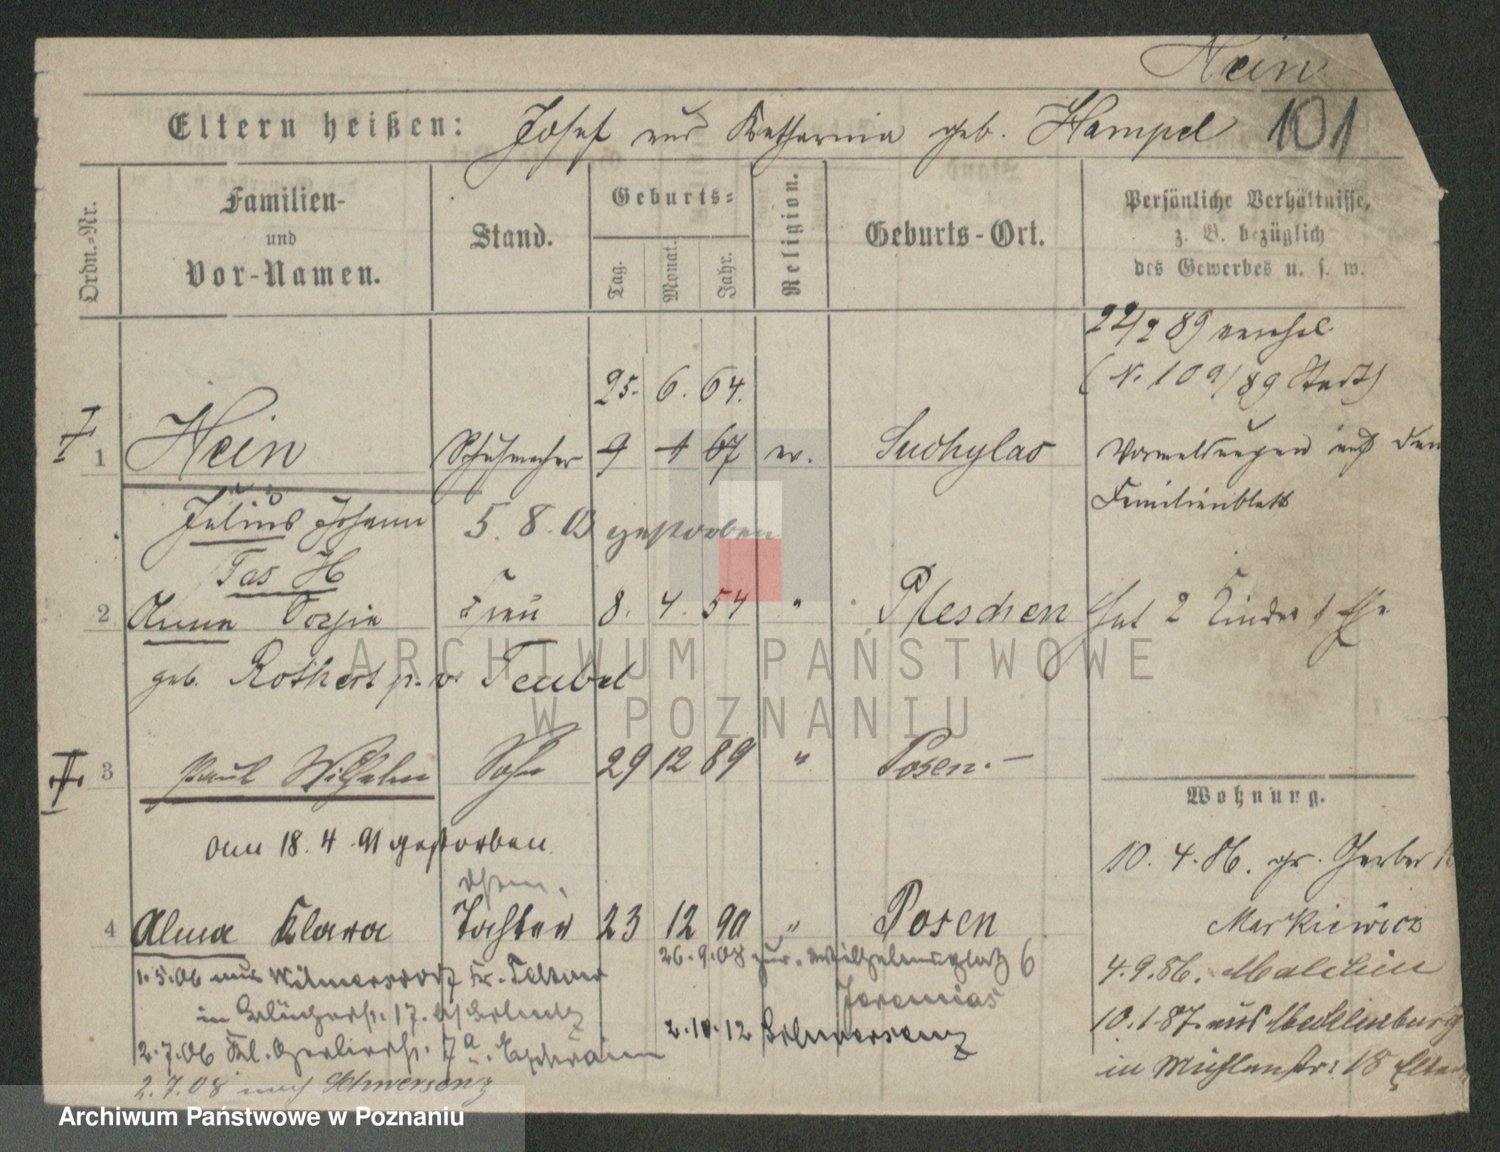 Hein
101
Eltern heißen: Josef und Katharina geb. Hampel
Ordn.-Nr.
Familien-
und
Vor-Namen.
Stand.
Geburts-
Tag.
Monat.
Jahr.
Religion.
Geburts-Ort.
Persönliche Verhältnisse,
z. B. bezüglich
des Gewerbes u. s. w.
22/2 89 verehel.
(N. 109/89 Stadt)
25. 6. 64.
1 Hein Schuhmacher 9 4 67 ev. Suchylas
Vormeldungen auf dem
Familienblatt
Julius Johann 5. 8. 03 gestorben
2 Anna Frau 8. 4. 54 " Pleschen Hat 2 Kinder
geb. Rothert Teubel
3 Paul Wilhelm Sohn 29 12 89 " Posen.—
Wohnung.
am 18. 4. 91 gestorben.
10. 4. 86. gr. Gerber
4 Alma Klara Tochter 23 12 90 " Posen
Markiewicz
1.5.06 aus Wilmersdorf Kr. Teltow
26.9.08 zur. Wilhelmsplatz 6
4.9.86. Malchin
in 17.
Jeremias
10.1.87. aus Mecklenburg
2.7.06 Kl. Gerberstr. 7a Ephraim
2.10.12 Schwersenz
in Mühlenstr. 18 Eltern
2.7.08 nach Schwersenz
ARCHIWUM PAŃSTWOWE
W POZNANIU
Archiwum Państwowe w Poznaniu